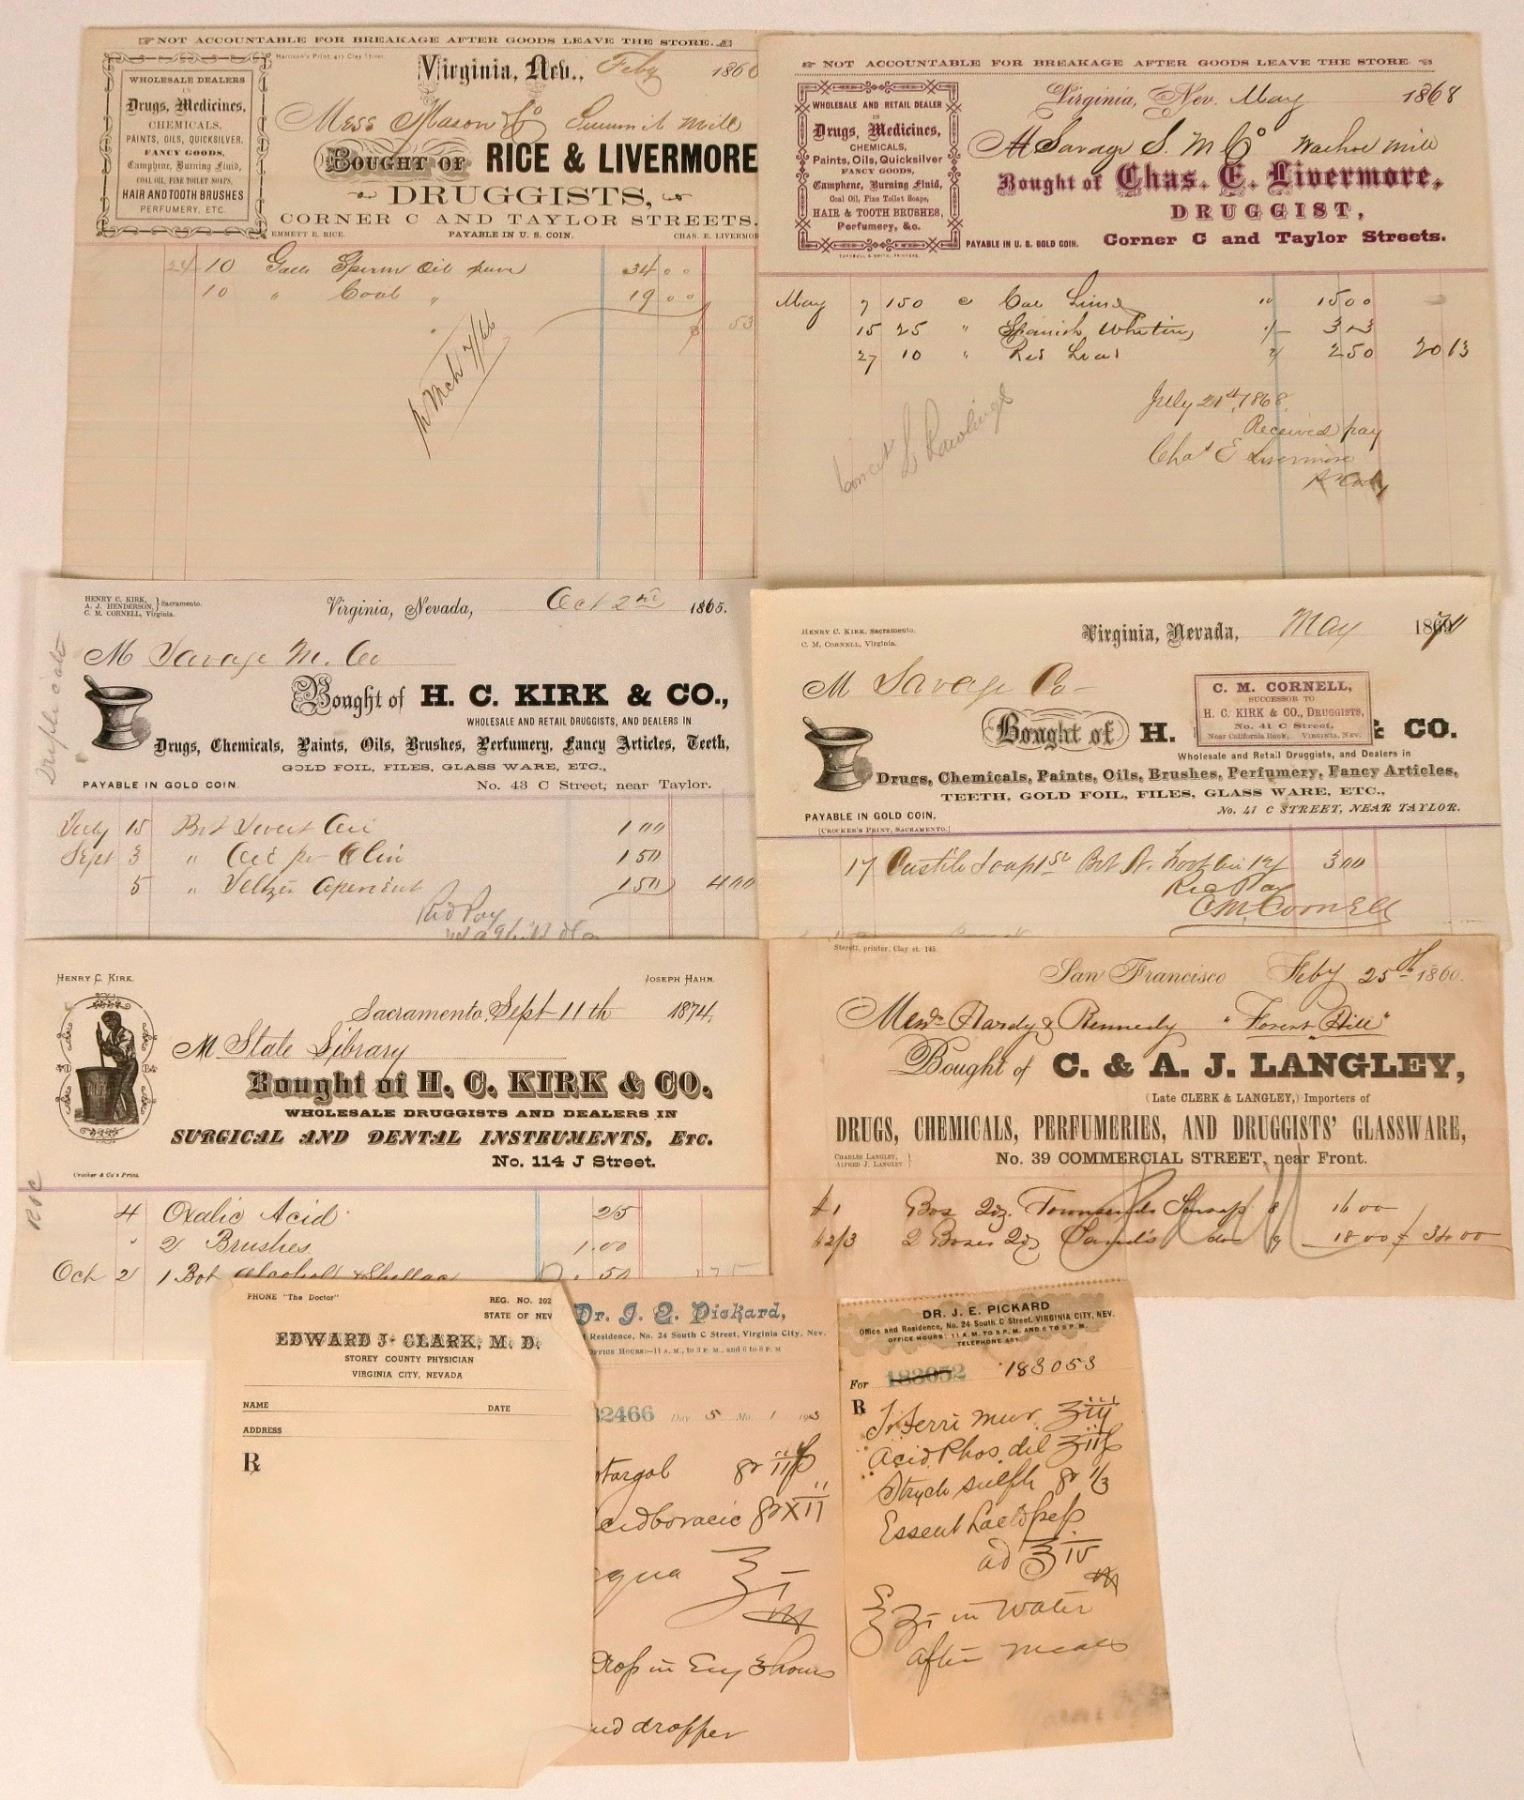 NOT ACCOUNTABLE FOR BREAKAGE AFTER GOODS LEAVE THE STORE.
Harrison's Print, 417 Clay Street.
WHOLESALE DEALERS
IN
Drugs, Medicines,
CHEMICALS,
PAINTS, OILS, QUICKSILVER,
FANCY GOODS,
Camphene, Burning Fluid,
COAL OIL, FINE TOILET SOAPS,
HAIR AND TOOTH BRUSHES
PERFUMERY, ETC.
Virginia, Nev., Feby 186
Mess Mason & Co Summit Mill
BOUGHT OF RICE & LIVERMORE
DRUGGISTS,
CORNER C AND TAYLOR STREETS.
EMMETT R. RICE. PAYABLE IN U. S. COIN. CHAS. E. LIVERMO
24 10 Galls Sperm Oil pure 34 00
10 " Coal " 19 00
$ 53
NOT ACCOUNTABLE FOR BREAKAGE AFTER GOODS LEAVE THE STORE.
WHOLESALE AND RETAIL DEALER
IN
Drugs, Medicines,
CHEMICALS,
Paints, Oils, Quicksilver
FANCY GOODS,
Camphene, Burning Fluid,
Coal Oil, Fine Toilet Soaps,
HAIR & TOOTH BRUSHES,
Perfumery, &c.
Virginia, Nev. May 1868
M Savage S. M Co Washoe Mill
Bought of Chas. E. Livermore,
DRUGGIST,
PAYABLE IN U. S. GOLD COIN. Corner C and Taylor Streets.
May 7 150 Lime 10 1500
15 25 " Spanish Whiting
27 10 " Red Lead 250 20 13
July 21st, 1868
Received pay
Chas E Livermore
HENRY C. KIRK,
A. J. HENDERSON, } Sacramento.
C. M. CORNELL, Virginia.
Virginia, Nevada, Oct 2nd 1865.
Duplicate
M Savage M. Co
Bought of H. C. KIRK & CO.,
WHOLESALE AND RETAIL DRUGGISTS, AND DEALERS IN
Drugs, Chemicals, Paints, Oils, Brushes, Perfumery, Fancy Articles, Teeth,
GOLD FOIL, FILES, GLASS WARE, ETC.,
PAYABLE IN GOLD COIN No. 43 C Street, near Taylor.
July 15 Bot Sweet Oil 1 00
Sept 3 " 1 50
5 " Seltzer Aperient 1 50 4 00
Recd Pay
HENRY C. KIRK, Sacramento.
C. M. CORNELL, Virginia.
Virginia, Nevada, May 1870
M Savage Co
C. M. CORNELL,
SUCCESSOR TO
H. C. KIRK & CO., DRUGGISTS,
No. 41 C Street,
Near California Bank, VIRGINIA, NEV.
Bought of H. & CO.
Wholesale and Retail Druggists, and Dealers in
Drugs, Chemicals, Paints, Oils, Brushes, Perfumery, Fancy Articles,
TEETH, GOLD FOIL, FILES, GLASS WARE, ETC.,
PAYABLE IN GOLD COIN. No. 41 C STREET, NEAR TAYLOR.
[CROCKER'S PRINT, SACRAMENTO.]
17 Castile Soap 3 00
Rec Pay
C M Cornell
HENRY C. KIRK. JOSEPH HAHN.
Sacramento, Sept 11th 1874.
M State Library
Bought of H. C. KIRK & CO.
WHOLESALE DRUGGISTS AND DEALERS IN
SURGICAL AND DENTAL INSTRUMENTS, ETC.
No. 114 J Street.
Crocker & Co's Print.
4 Oxalic Acid 25
" 2 Brushes 1.00
Oct 2 1 Bot Alcohol & Shellac .50 1 75
Sterett, printer, Clay st. 145.
San Francisco Feby 25th 1860.
Messrs Hardy & Kennedy "Forest Hill"
Bought of C. & A. J. LANGLEY,
(Late CLERK & LANGLEY,) Importers of
DRUGS, CHEMICALS, PERFUMERIES, AND DRUGGISTS' GLASSWARE,
CHARLES LANGLEY,
ALFRED J. LANGLEY }
No. 39 COMMERCIAL STREET, near Front.
#1 Box 2dz. Townsends Sarsap 8 16 00
#2/3 2 Boxes 2dz Sand's do 9 18 00 34.00
PHONE "The Doctor" REG. NO. 202
STATE OF NEV
EDWARD J. CLARK, M. D.
STOREY COUNTY PHYSICIAN
VIRGINIA CITY, NEVADA
NAME DATE
ADDRESS
R
Dr. J. E. Pickard,
Residence, No. 24 South C Street, Virginia City, Nev.
OFFICE HOURS:—11 A. M., to 3 P. M., and 6 to 8 P. M
2466 Day 5 Mo. 1 1903
targol gr
cid boracic gr XII
qua
Drop in Eey 3 hours
and dropper
DR. J. E. PICKARD
Office and Residence, No. 24 South C Street, VIRGINIA CITY, NEV.
OFFICE HOURS: 11 A. M. TO 3 P. M. AND 6 TO 8 P. M.
TELEPHONE 451.
For 183052 183053
R
Tr Ferri Mur ʒiij
Acid Phos dil
Strych sulph gr 1/3
Essent Lactopep
ad ℥ IV
in water
after meals